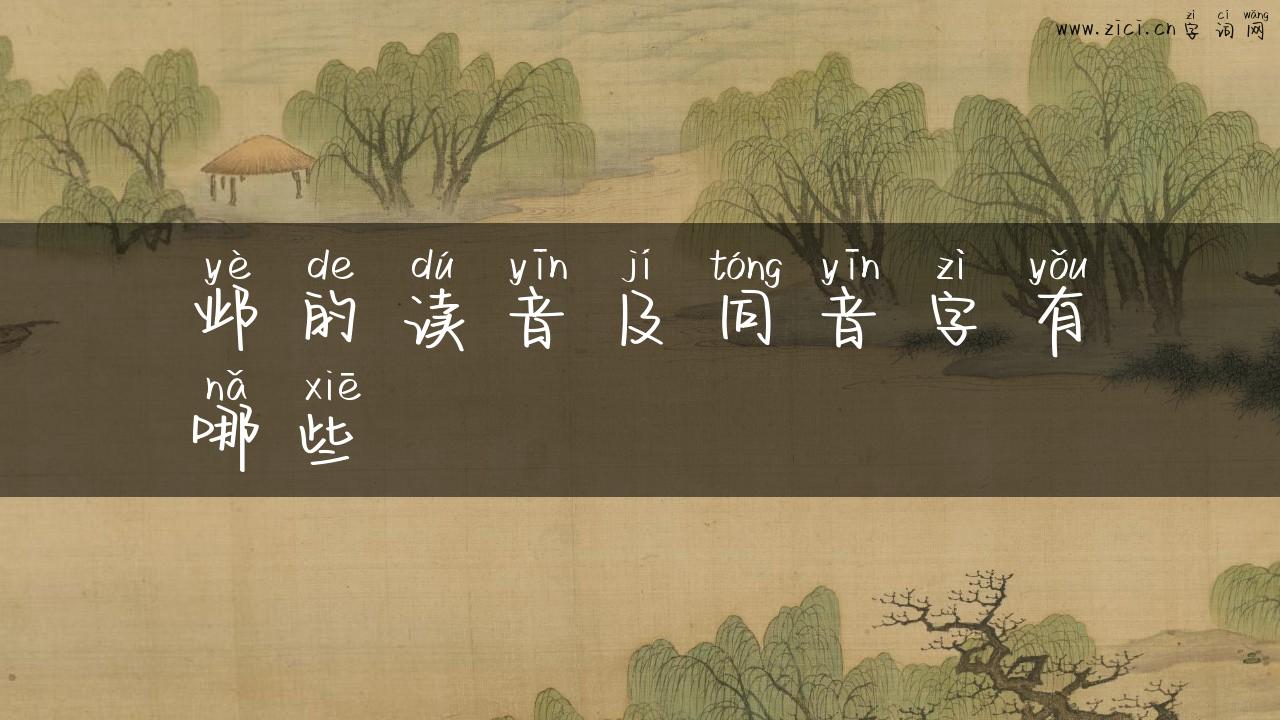 zì cí wǎng
www.zici.cn 字 词 网
yè de dú yīn jí tóng yīn zì yǒu
邺 的 读 音 及 同 音 字 有
nǎ xiē
哪 些